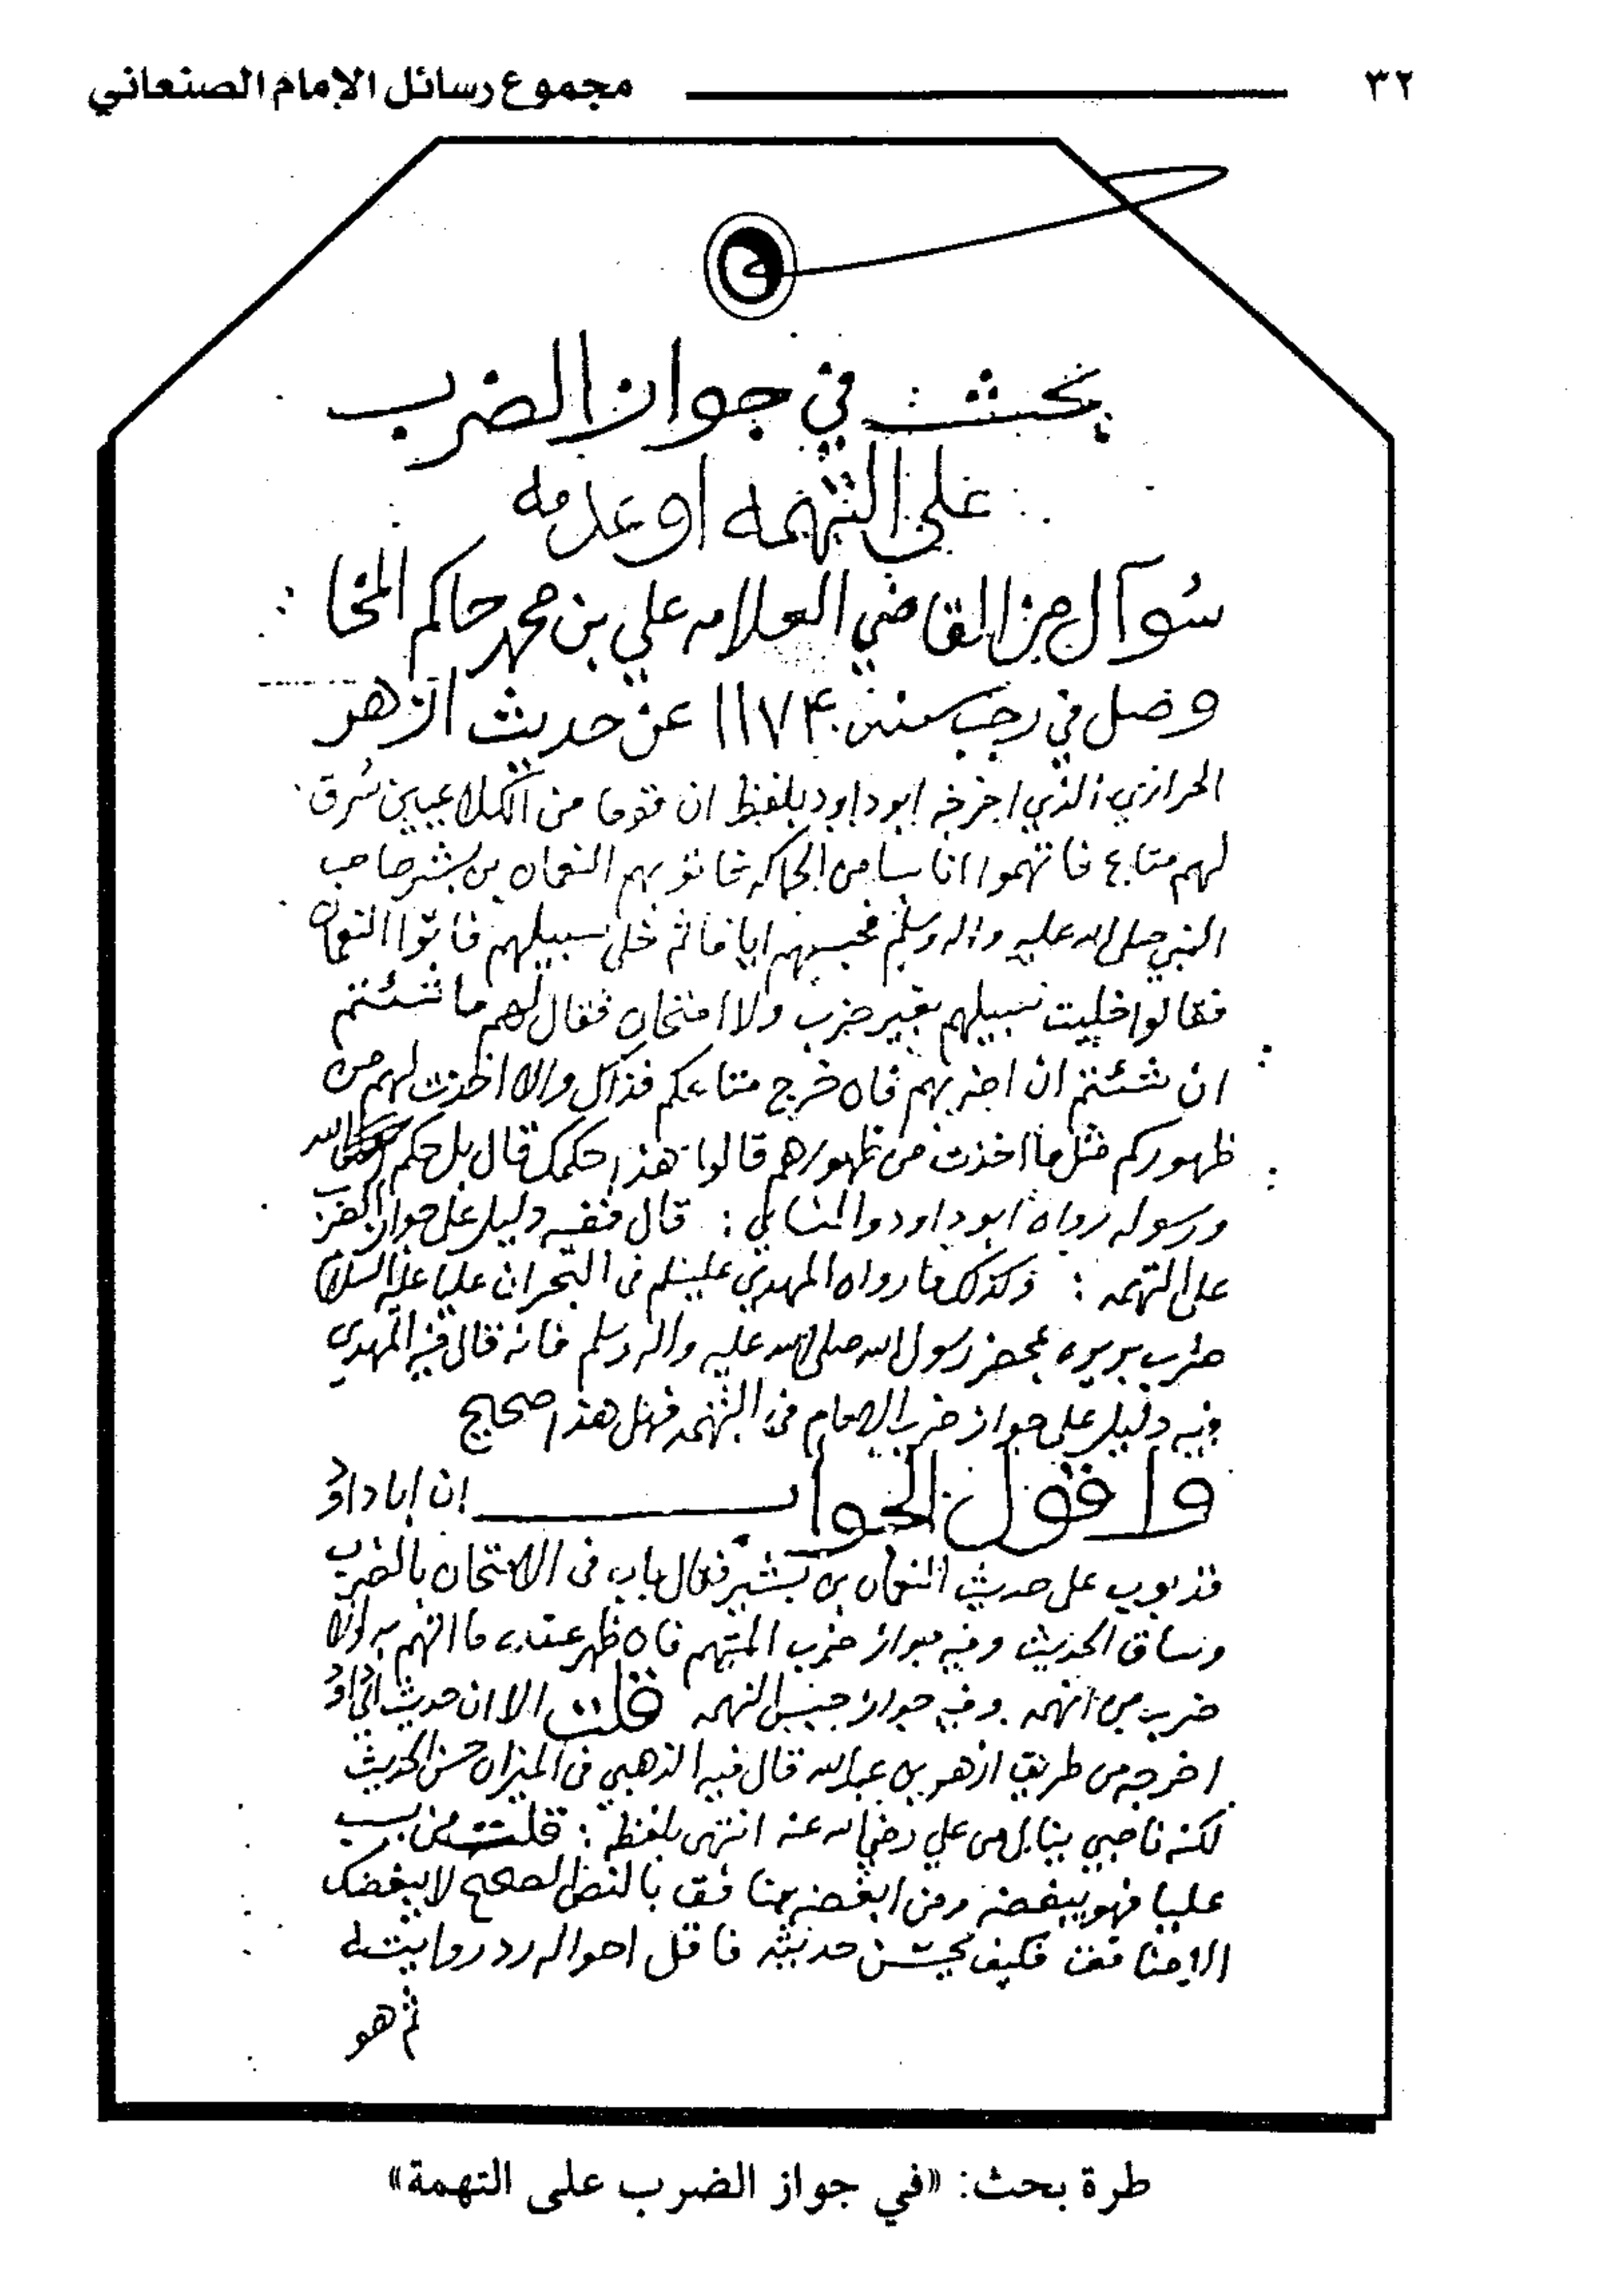 ٣٢ مجموع رسائل الإمام الصنعاني
بحث في جواز الضرب
على التهمه او عدمه
سُوآل من القاضي العلامه علي بن محمد حاكم المخا
وصل في رجب سنة ١١٧٤ عن حديث ازهر
الحرازي الذي اخرجه ابو داود بلفظ ان قوما من الكلاعيين سُرق
لهم متاع فاتهموا اناسا من الحاكه فاتو بهم النعمان بن بشير صاحب
النبي صلى الله عليه واله وسلم فحبسهم اياما ثم خلى سبيلهم فاتوا النعمان
فقالوا خليت سبيلهم بغير ضرب ولا امتحان فقال لهم ما شئتم
ان شئتم ان اضربهم فان خرج متاعكم فذاك والا اخذت لهم من
ظهوركم مثل ما اخذت من ظهورهم قالوا هذا حكمك قال بل حكم الله
ورسوله رواه ابو داود والنسائي : قال ففيه دليل على جواز الضرب
على التهمه : وكذلك ما رواه المهدي عليلم في البحر ان عليا عليه السلام
ضرب بريره بمحضر رسول الله صلى الله عليه واله وسلم فانه قال فيه المهدي
فيه دليل على جواز ضرب الامام في التهمه فهل هذا صحيح
واقول الجواب ان ابا داوُد
قد بوب على حديث النعمان بن بشير فقال باب في الامتحان بالضرب
وساق الحديث وفيه جواز ضرب المتهم فان ظهر عنده ما اتهم به والا
ضرب من اتهمه وفيه جواز حبس التهمه قلت الا ان حديث ابي داوُد
اخرجه من طريق ازهر بن عبد الله قال فيه الذهبي في الميزان حسن الحديث
لكنه ناصبي ينال من علي رضي الله عنه انتهى بلفظه : قلت من سب
عليا فهو يبغضه ومن ابغضه منافق بالنص الصحيح لا يبغضك
الا منافق فكيف يحسن حديثه فاقل احواله رد روايته
ثم هو
طرة بحث: «في جواز الضرب على التهمة»